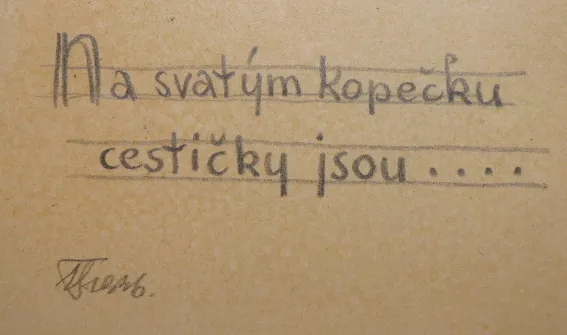 Na svatým kopečku
cestičky jsou....